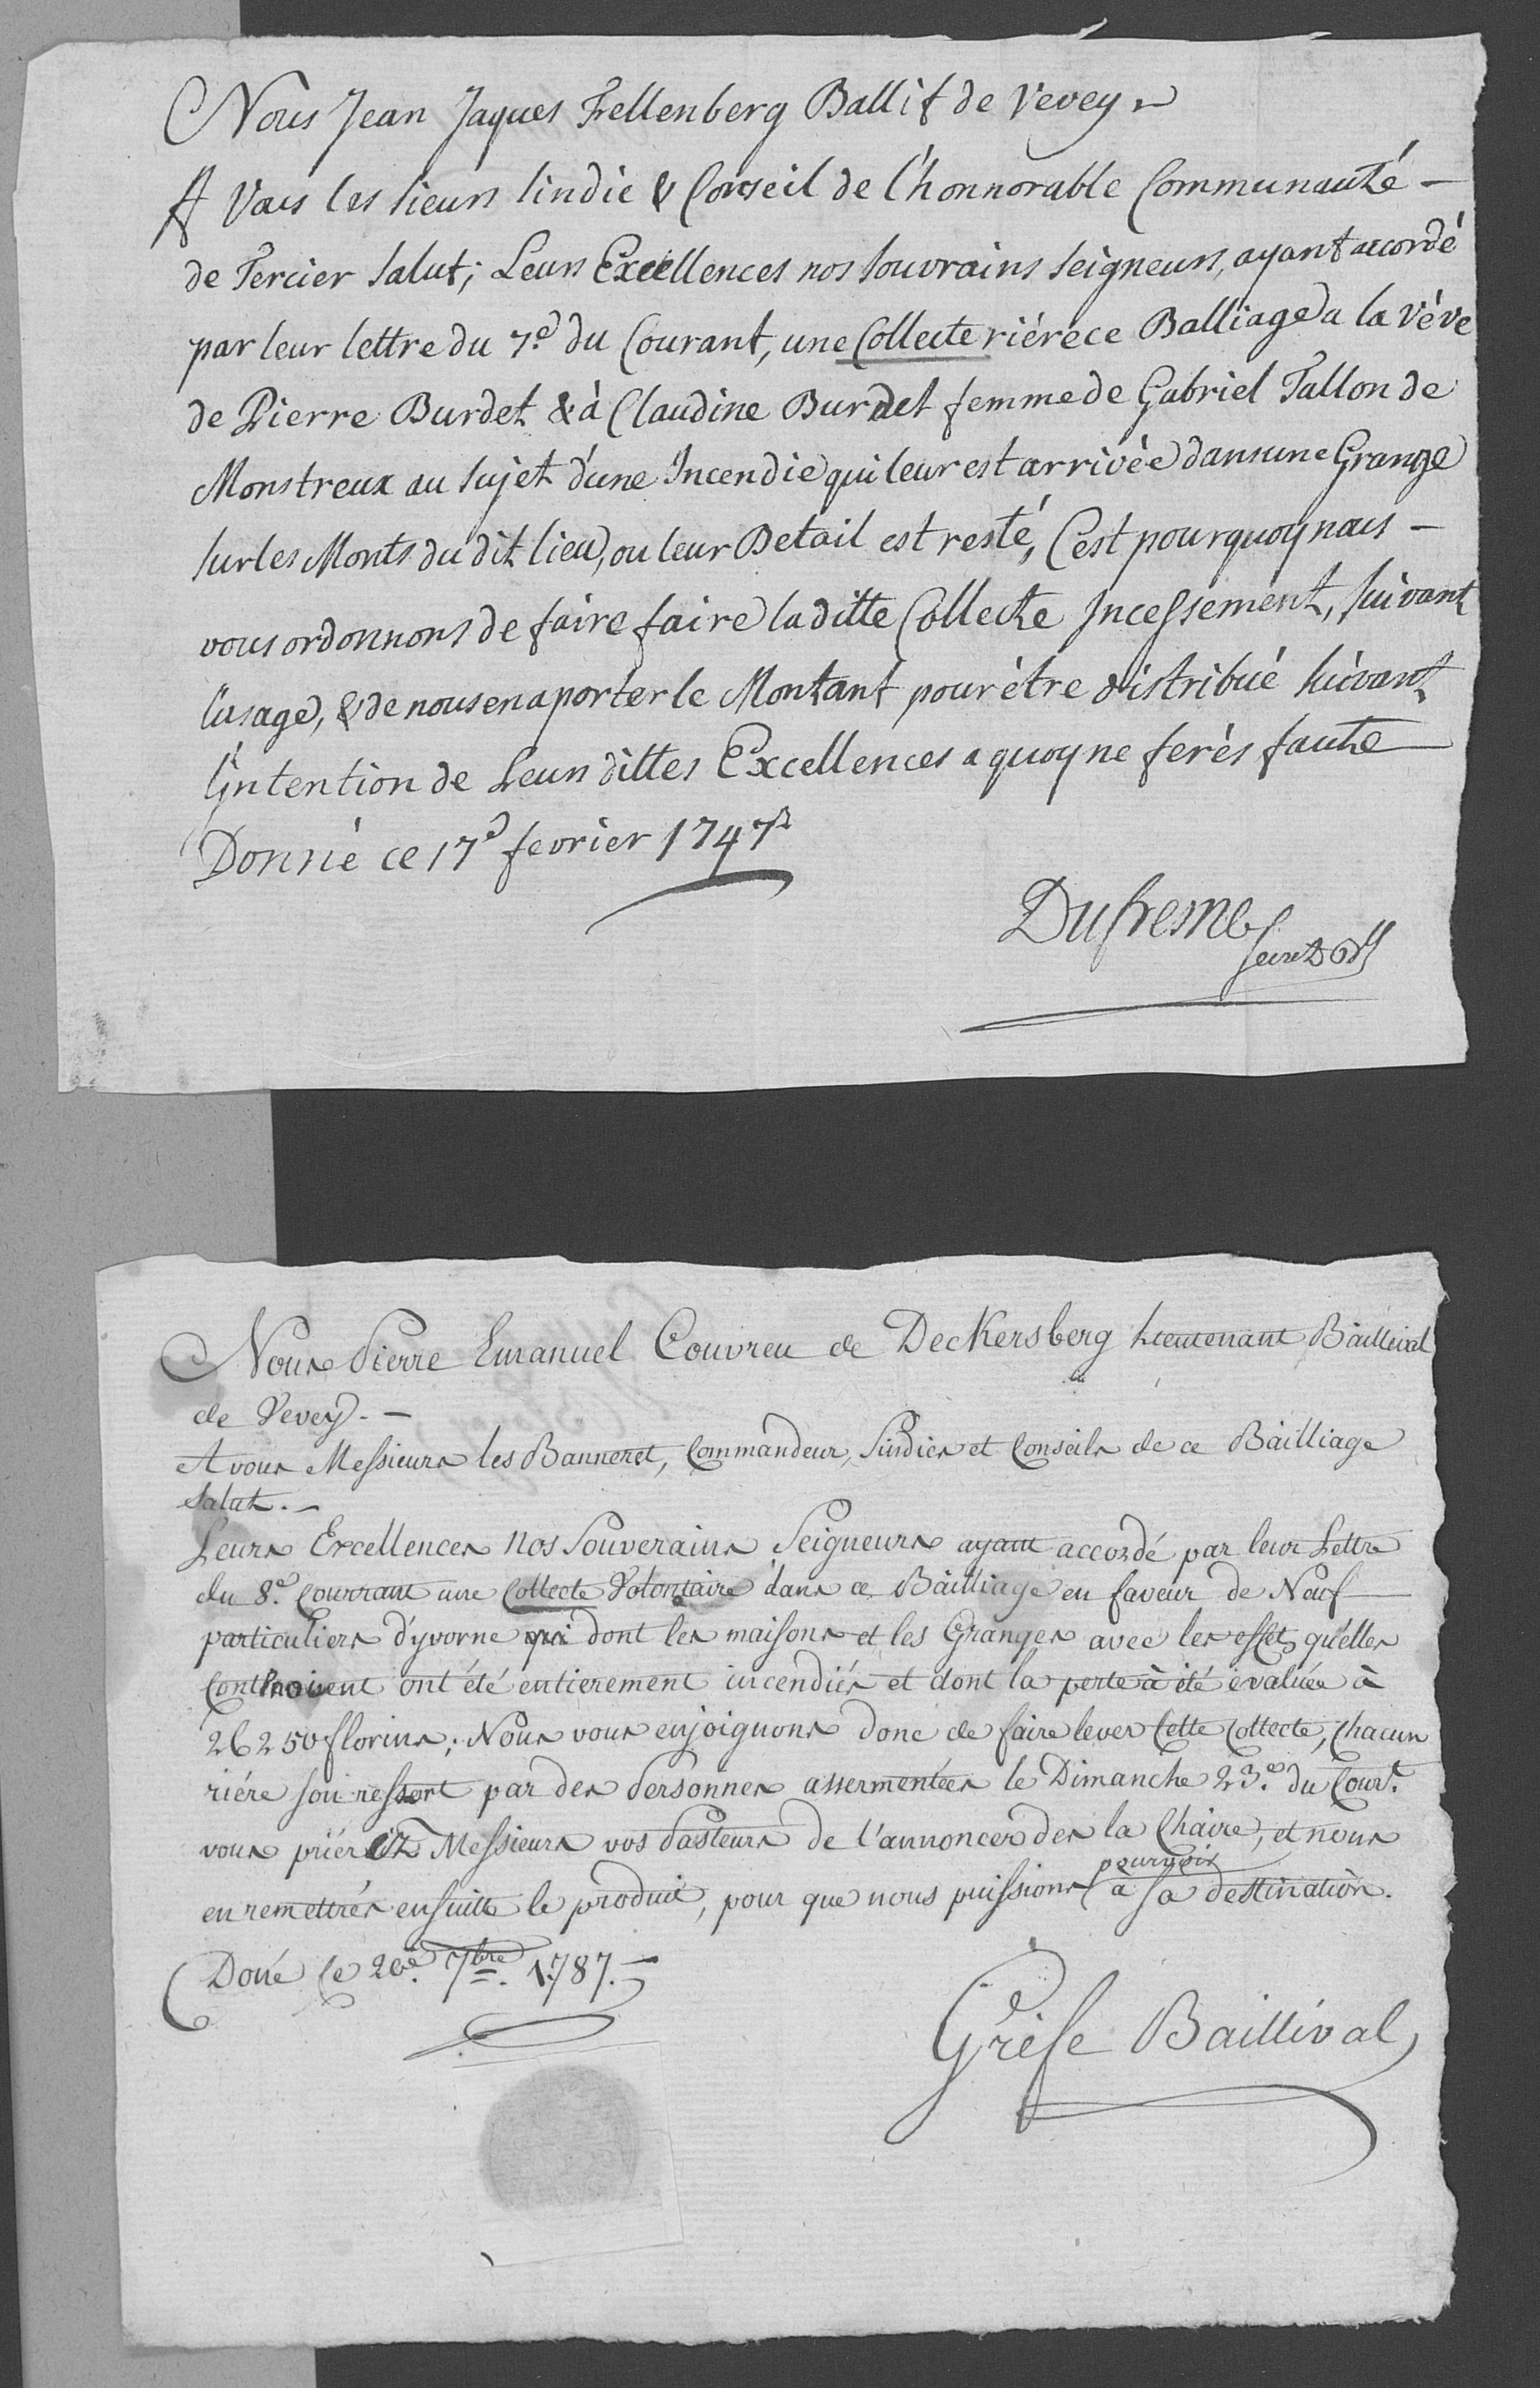 Nous Jean Jaques Fellenberg Ballif de Vevey
A Vous les sieurs sindic & Conseil de l'honnorable Communauté —
de Tercier salut; Leurs Excellences nos souvrains seigneurs, ayant accordé
par leur lettre du 7e. du Courant, une Collecte riére ce Balliage a la véve
de Pierre Burdet & à Claudine Burdet femme de Gabriel Tallon de
Monstreux au sujet d'une Incendie qui leur est arrivée dans une Grange
sur les Monts du dit lieu, ou leur Betail est resté, C'est pourquoy nous —
vous ordonnons de faire faire la ditte Collecte Incessement, suivant
l'usage, & de nous en aporter le Montant pour être distribué suivant
l'intention de Leurs dittes Excellences a quoy ne ferés faute
Donné ce 17e fevrier 1747
Dufresne
Nous Pierre Emanuel Couvreu de Deckersberg Lieutenant Baillival
de Vevey. —
A vous Messieurs les Banneret, Commandeur, Sindics et Conseils de ce Bailliage
Salut. —
Leurs Excellences Nos Souverains Seigneurs ayant accordé par leur Lettre
du 8e. Courrant une Collecte Volontaire dans ce Bailliage en faveur de Neuf
particuliers d'yvorne qui dont les maisons et les Granges avec les effets qu'elles
Contenoient ont été entierement incendiés et dont la perte à été évaluée à
26250 florins; Nous vous enjoignons donc de faire lever Cette Collecte, Chacun
riére son ressort par des Personnes assermentées le Dimanche 23e. du Court.
vous prierés Messieurs vos Pasteurs de l'annoncer des la Chaire, et nous
en remettrés ensuitte le produit, pour que nous puissions pourvoir à sa destination.
Doñé Ce 20e. 7bre. 1787. —
Gréfe Baillival